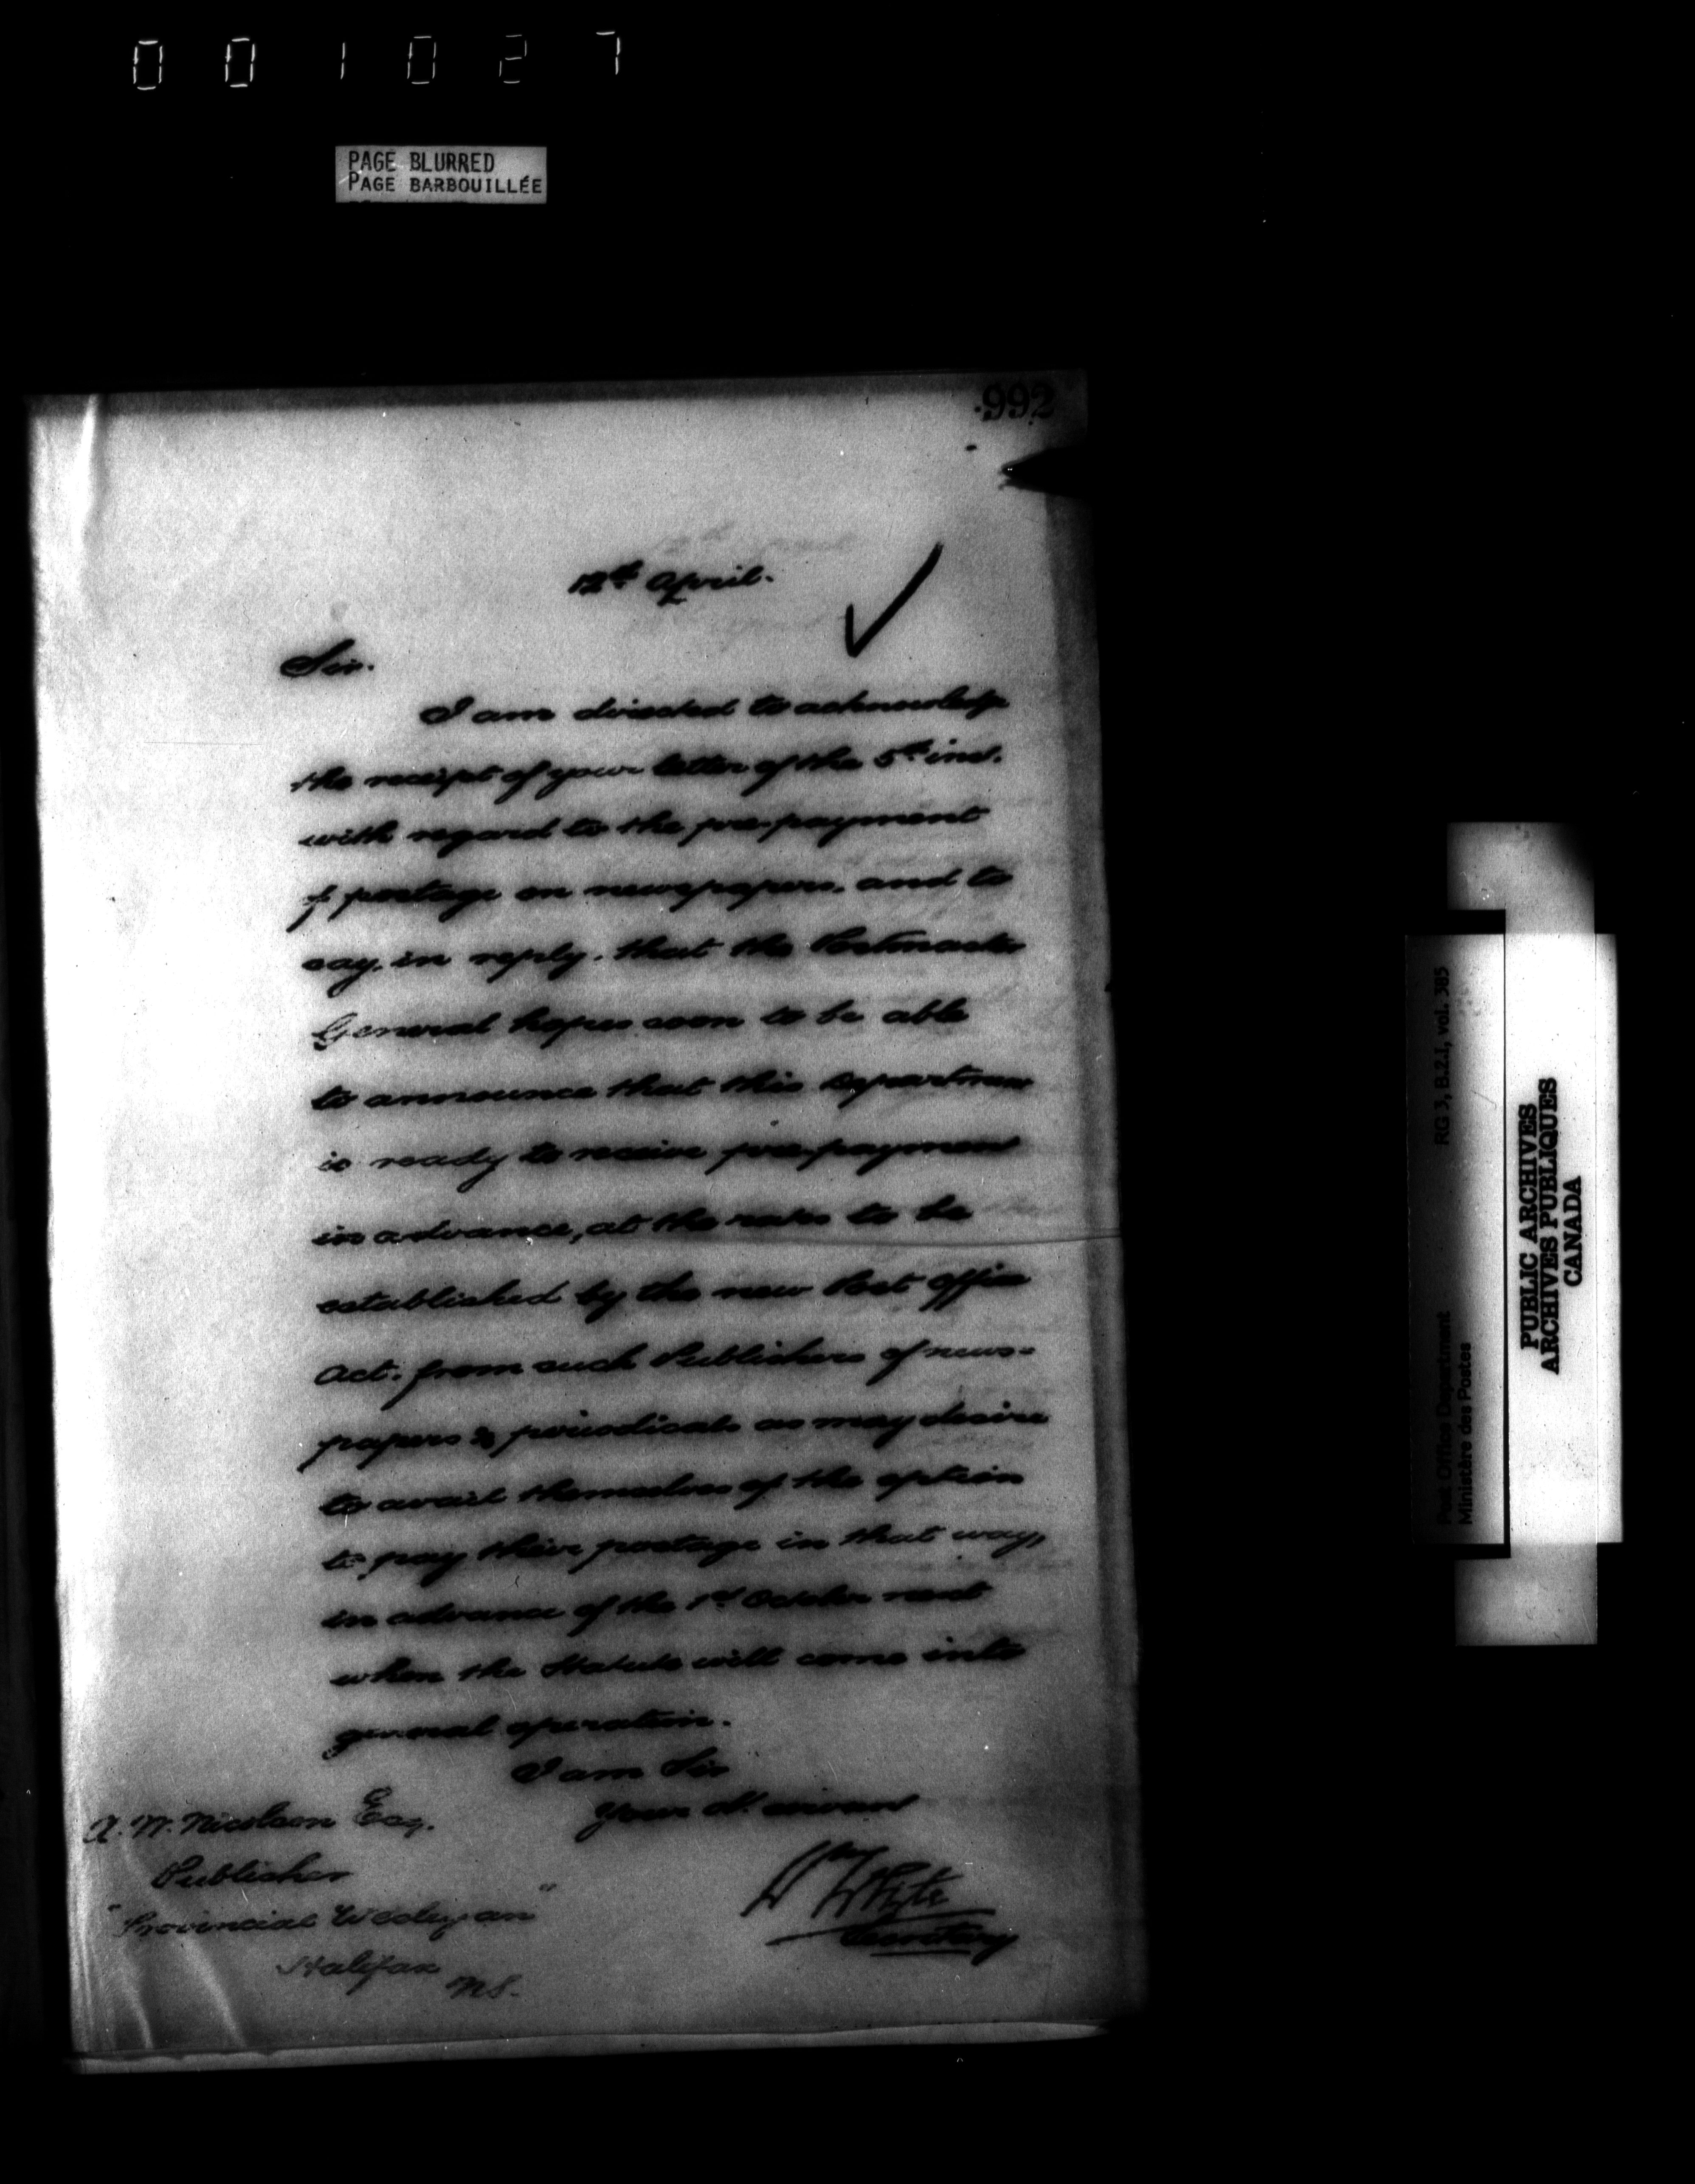 001027
PAGE BLURRED
PAGE BARBOUILLÉE
992
12th April.
Sir.
I am directed to acknowledge
the receipt of your letter of the 5th inst.
with regard to the pre-payment
of postage on newspapers, and to
say, in reply, that the Postmaster
General hopes soon to be able
to announce that this Department
is ready to receive pre-payment
in advance, at the rates to be
established by the new Post Office
Act, from such Publishers of news-
papers & periodicals as may desire
to avail themselves of the option
to pay their postage in that way,
in advance of the 1st October next
when the Statute will come into
general operation.
I am Sir
Your
Wm White
Secretary
A. W. Nicolson Esq.
Publisher
"Provincial Wesleyan"
Halifax
N.S.
RG 3, B.2.I, vol. 385
Post Office Department
Ministère des Postes
PUBLIC ARCHIVES
ARCHIVES PUBLIQUES
CANADA